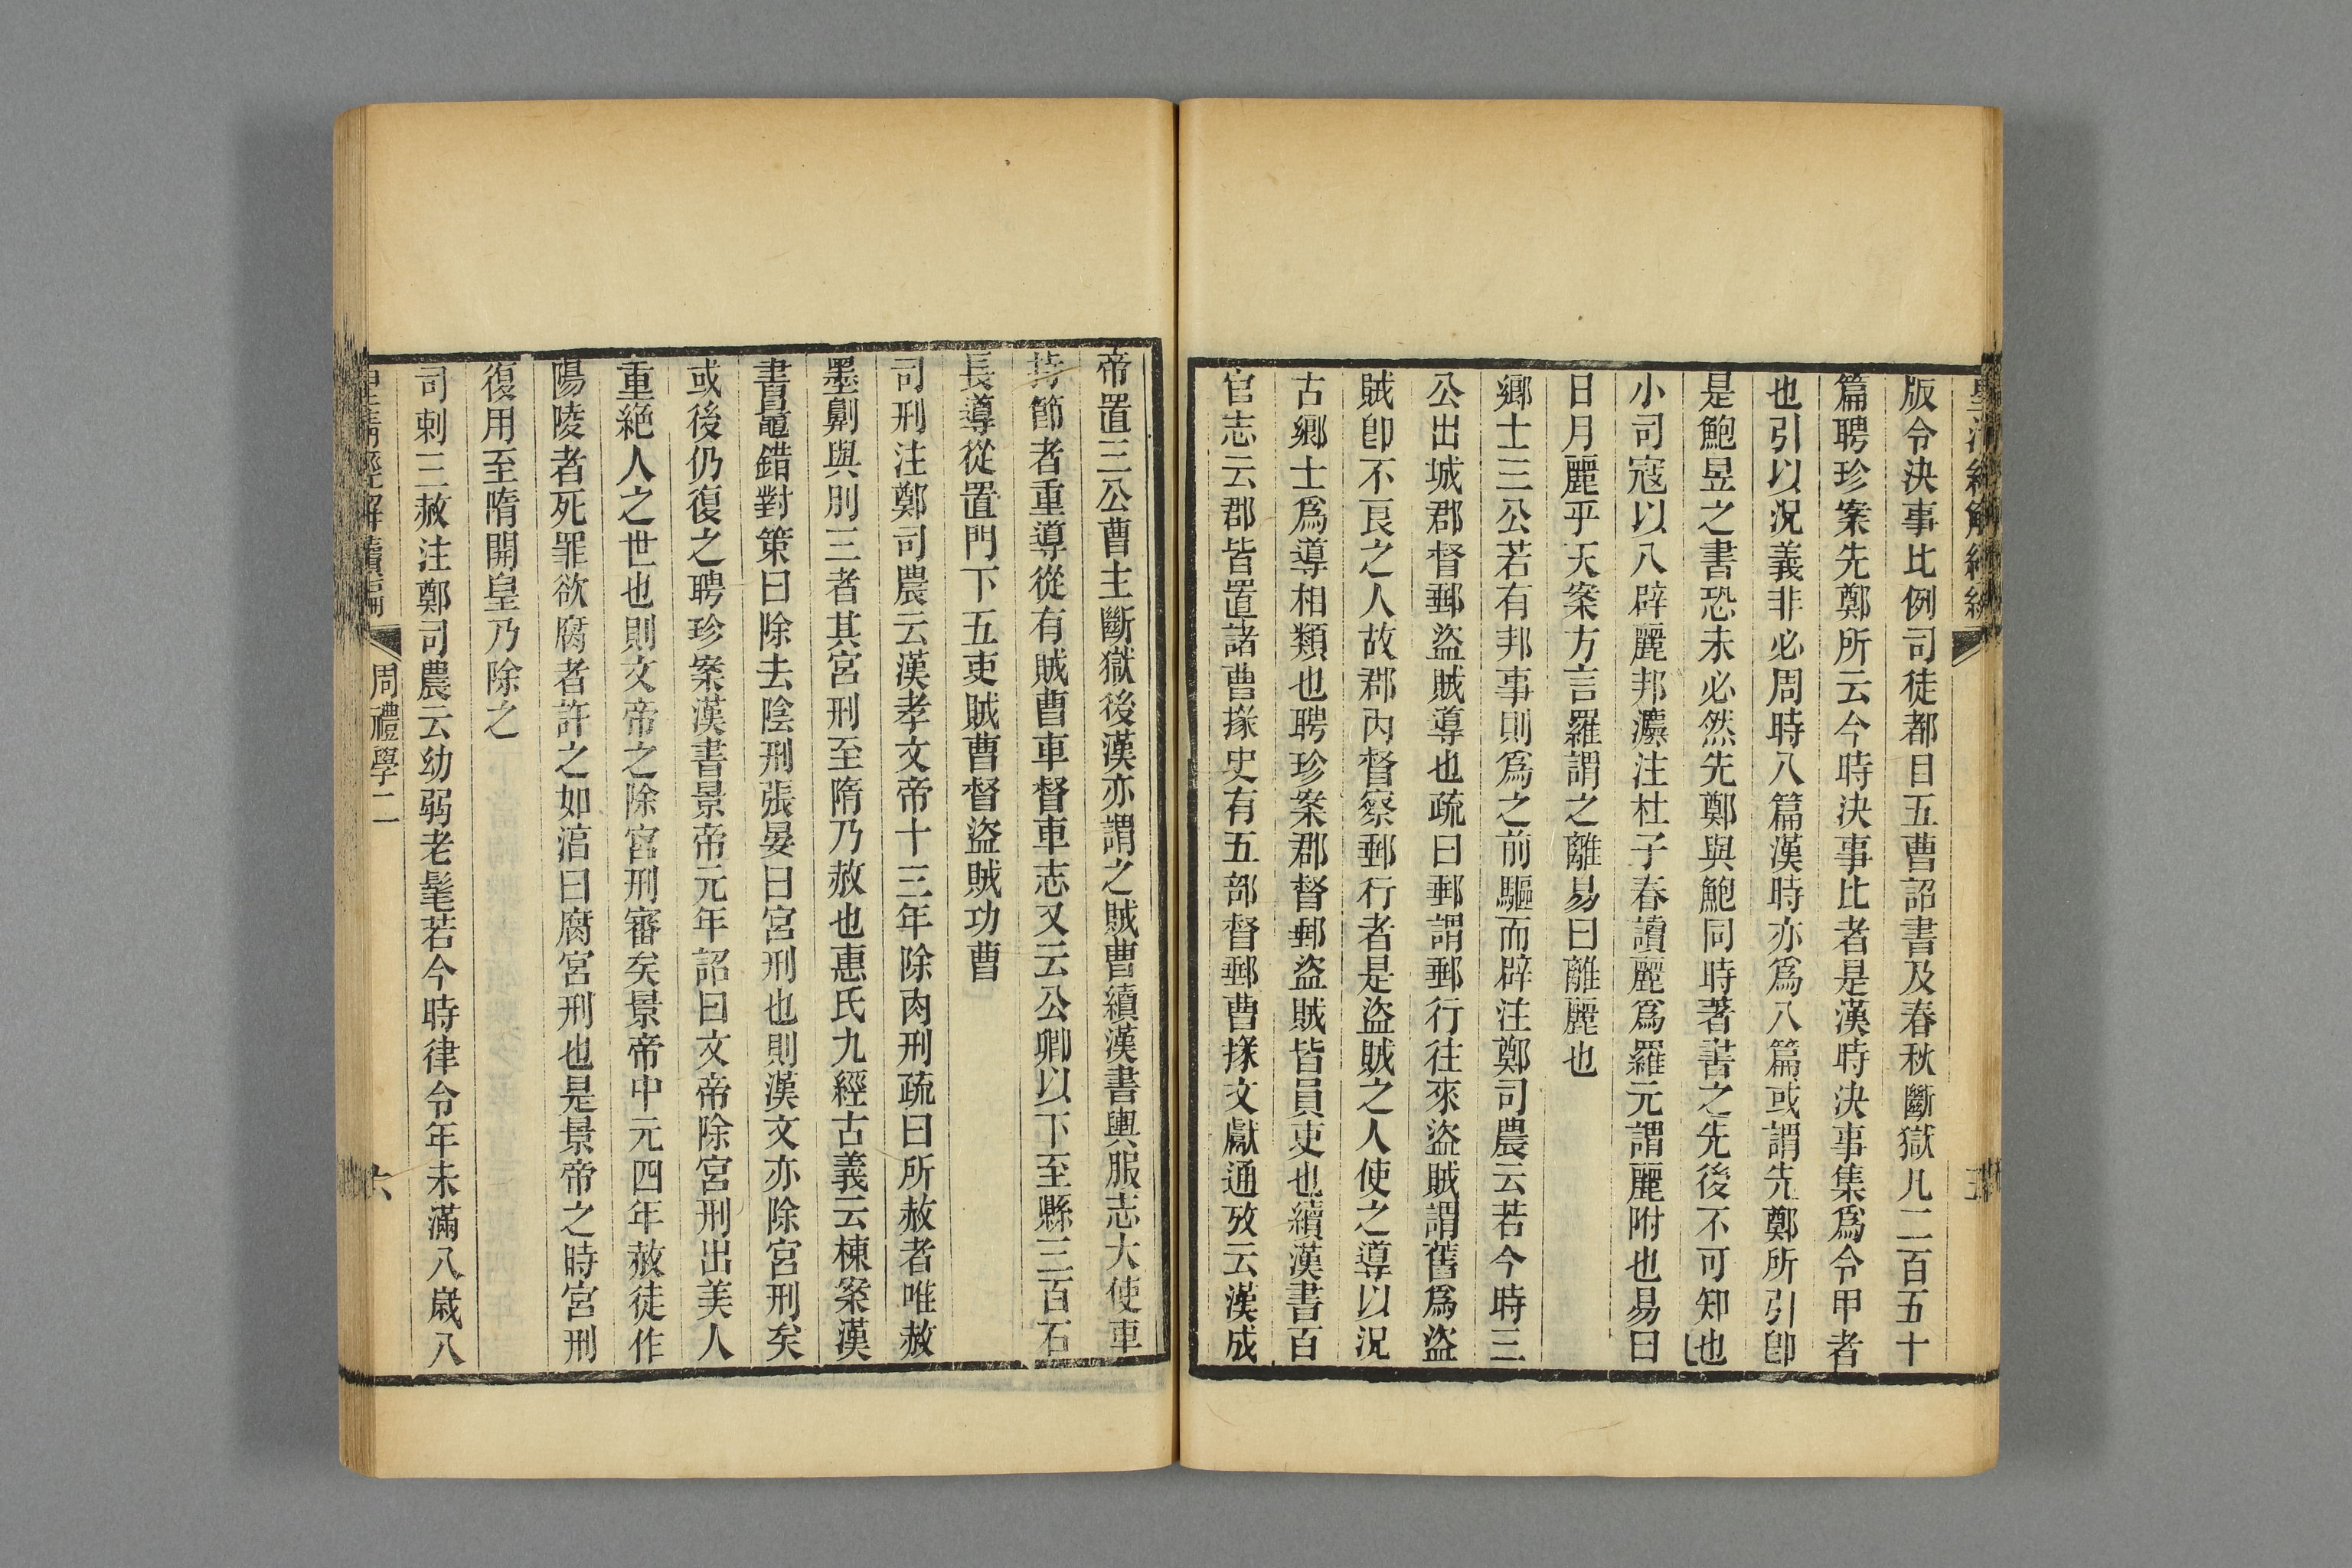 版令決事比例司徒都目五曹詔書及春秋斷獄凡二百五十
篇聘珍案先鄭所云今時決事比者是漢時決事集爲令甲者
也引以况義非必周時八篇漢時亦爲八篇或謂先鄭所引卽
是鮑昱之書恐未必然先鄭與鮑同時著書之先後不可知也
小司寇以八辟麗邦灋注杜子春讀麗爲羅元謂麗附也易曰
日月麗乎天案方言羅謂之離易曰離麗也
鄉士三公若有邦事則爲之前驅而辟注鄭司農云若今時三
公出城郡督郵盜賊導也疏曰郵謂郵行往來盜賊謂舊爲盜
賊卽不良之人故郡內督察郵行者是盜賊之人使之導以况
古鄉士爲導相類也聘珍案郡督郵盜賊皆員吏也續漢書百
官志云郡皆置諸曹掾史有五部督郵曹掾文獻通攷云漢成
帝置三公曹主斷獄後漢亦謂之賊曹續漢書輿服志大使車
持節者重導從有賊曹車督車志又云公卿以下至縣三百石
長導從置門下五吏賊曹督盜賊功曹
司刑注鄭司農云漢孝文帝十三年除肉刑疏曰所赦者唯赦
墨劓與刖三者其宮刑至隋乃赦也惠氏九經古義云棟案漢
書鼂錯對策曰除去陰刑張晏曰宮刑也則漢文亦除宮刑矣
或後仍復之聘珍案漢書景帝元年詔曰文帝除宮刑出美人
重絕人之世也則文帝之除宮刑審矣景帝中元四年赦徒作
陽陵者死罪欲腐者許之如湻曰腐宮刑也是景帝之時宮刑
復用至隋開皇乃除之
司刺三赦注鄭司農云幼弱老髦若今時律令年未滿八歲八
周禮學二
六